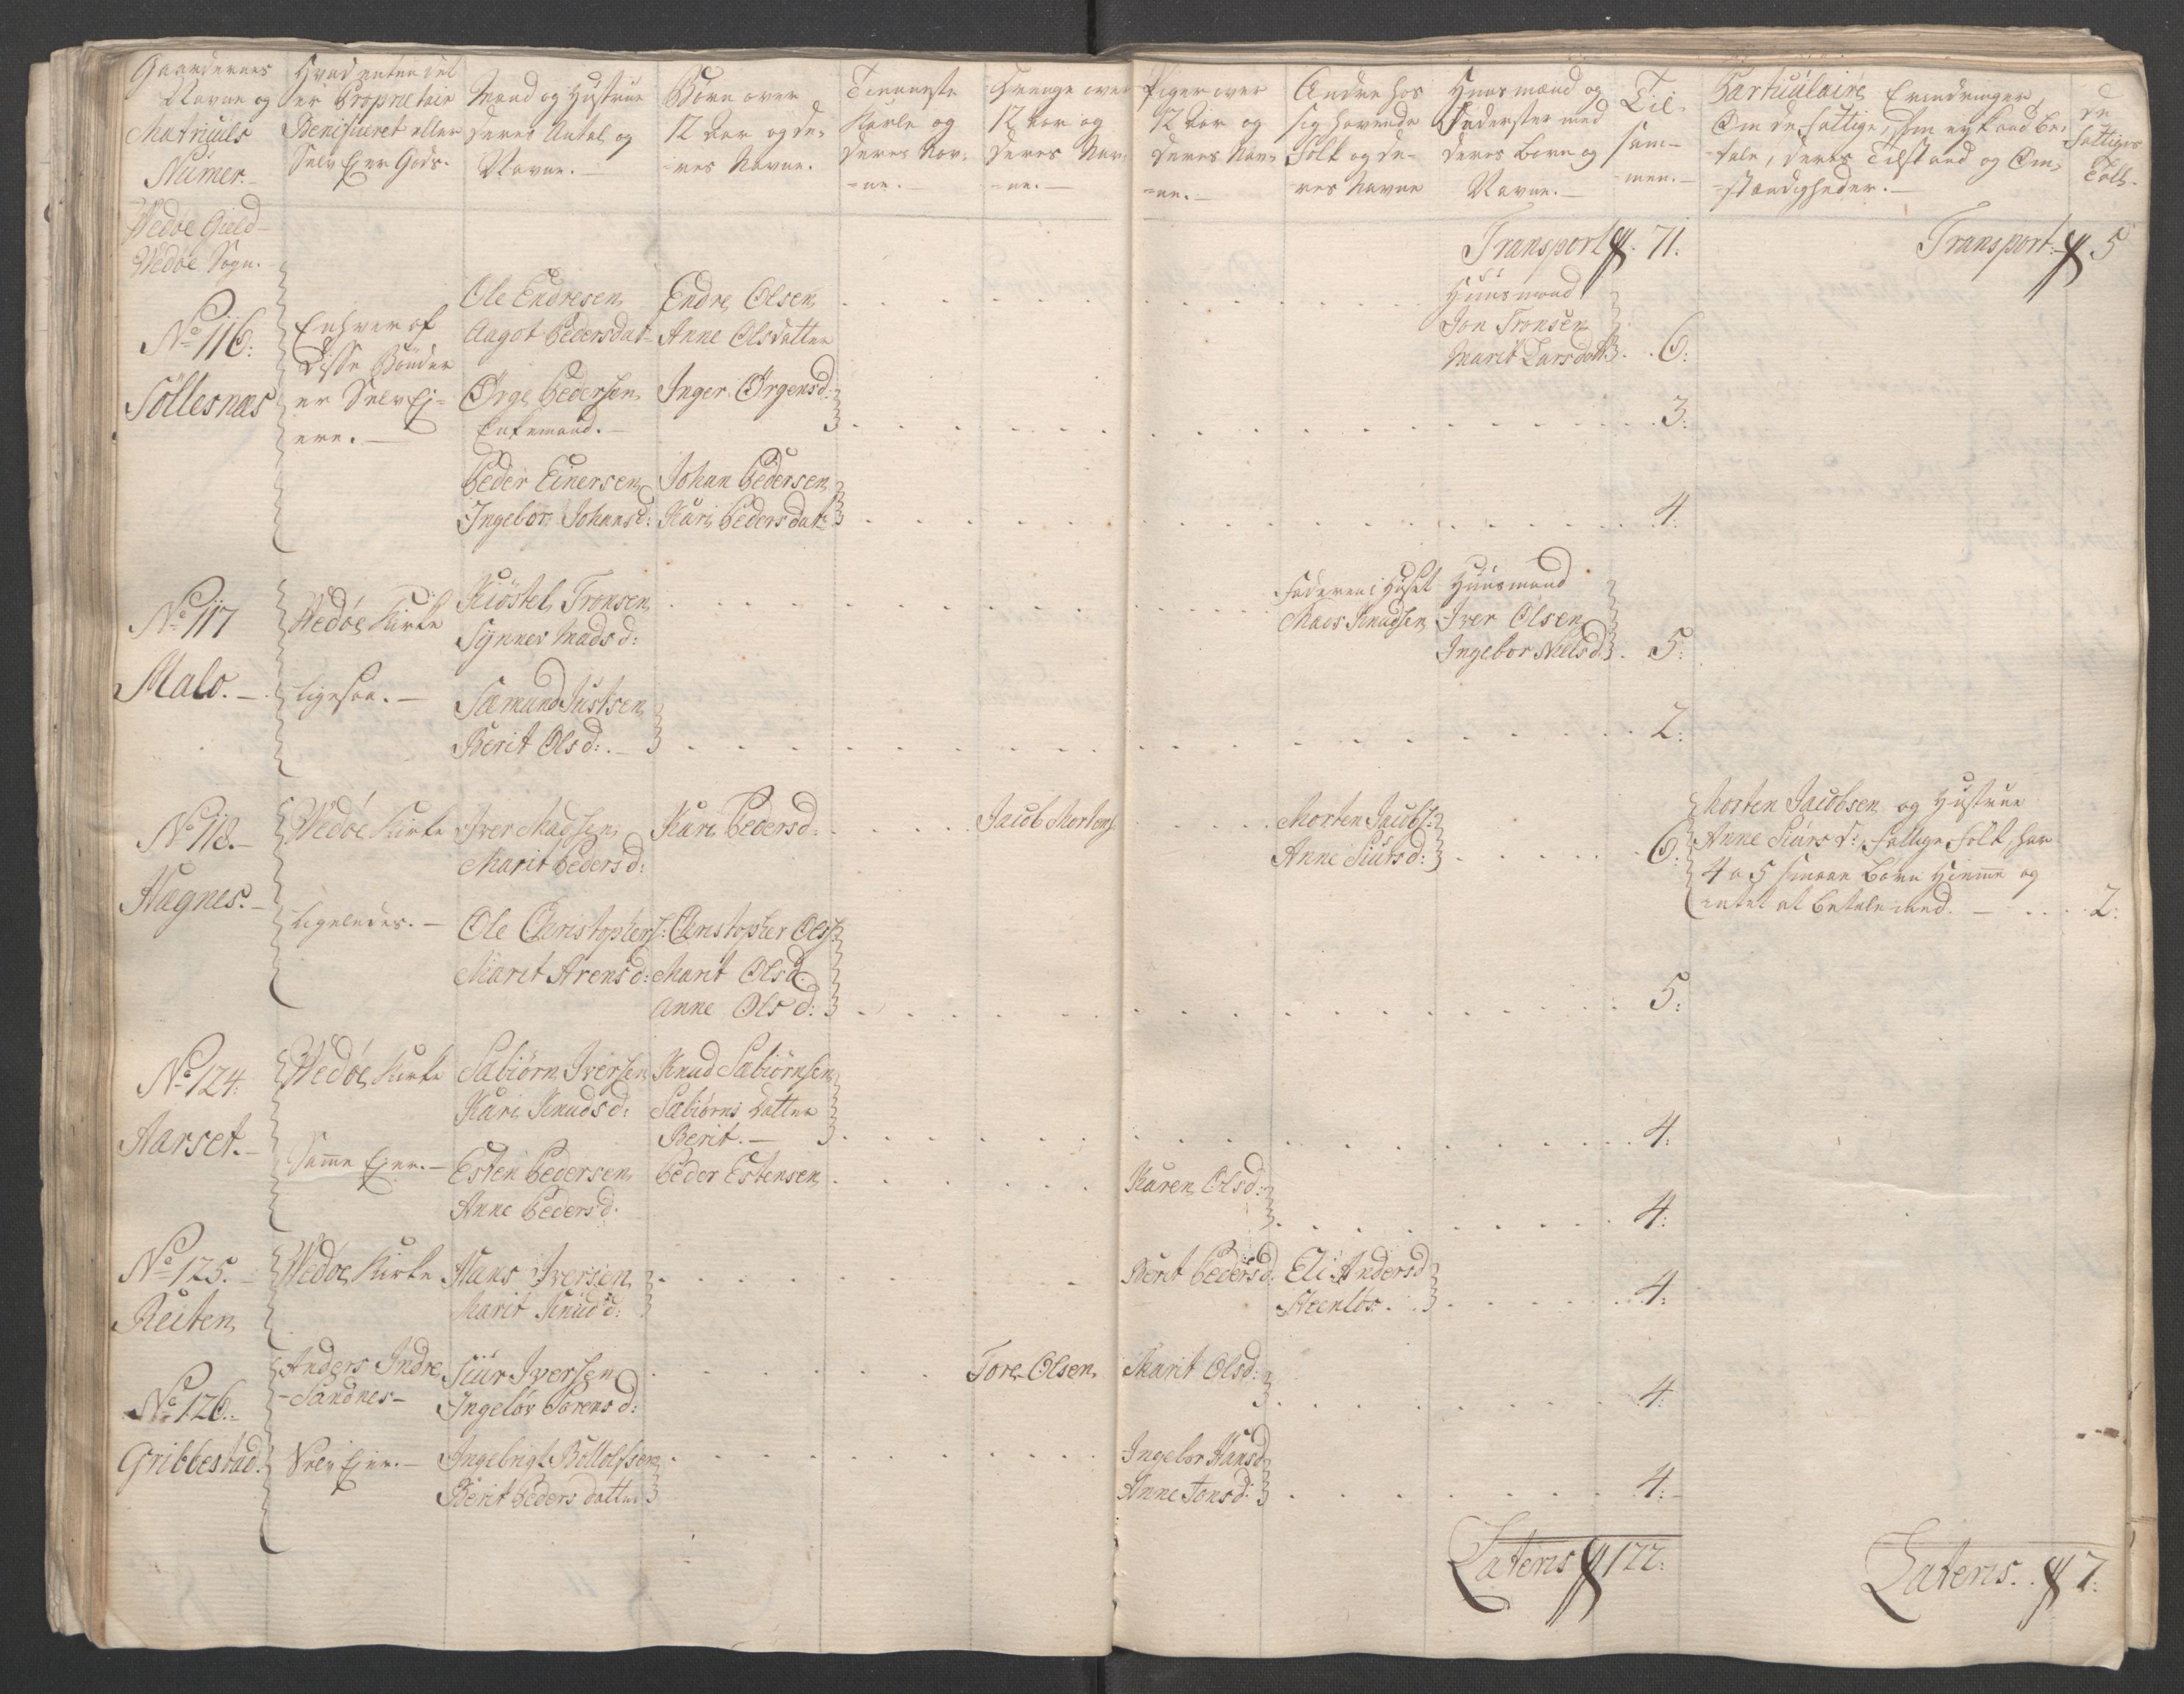 Gaardernes
Navne og
Matriculs
Numer.
Hvad enten det
er Proprietair
Benificeret eller
Selv Ejer Gods.
Mand og Hustrue
deres Antal og
Navne.
Børn over
12 Aar og de-
-res Navne.
Tienneste
Karle og
deres Nav-
-ne.
Drenge over
12 Aar og
deres Nav-
-ne.
Piger over
12 Aar og
deres Nav-
-ne.
Andre hos
sig havende
Folk og de-
-res Navne
Huusmænd og
Inderster med
deres børn og
Navne.
Til-
sam-
-men.
Particulaire Erindringer
Om de fattige, som ey kand be-
-tale, deres Tilstand og Om-
-stændigheder.
de
fattiges
Tall.
Wedøe Gield
Wedøe Sogn.
Transport 71:
Transport: 5
No 116:
Sollesnæs
Enhver af
disse Bønder
er Selv Ej-
ere.
Ole Endresen
Aagot Pedersdat:
Endre Olsen
Anne Olsdatter
Huusmand
Jon Tronsen
Marit Larsdatt: 6:
Ørge Pedersen
Enkemand.
Inger Ørgensd: 3:
Peder Einersen
Ingebor Johansd:
Johan Pedersen
Kari Pedersdat: 4:
No 117
Malo.
Wedøe Kirke
Kiøstel Tronsen
Synnev Madsd:
Faderen i Huset
Mads Knudsen
Huusmand
Iver Olsen
Ingebor Nielsd: 5:
ligesaa.
Sæmund Justsen
Berit Olsd: 2:
No 118.
Hagnes.
Wedøe Kirke
Iver Madsen
Marit Pedersd:
Kari Pedersd:
Jacob Mortens:
Morten Jacobs:
Anne Siursd: 6:
Morten Jacobsen og Hustrue
Anne Siursd: fattige Folk, har
4 a 5 smaae Børn hiemme og
intet at betale med. 2:
ligeledes.
Ole Christophers:
Marit Arensd:
Christopher Ols:
Marit Olsd:
Anne Olsd: 5:
No 124.
Aarset.
Wedøe Kirke
Sabiørn Iversen
Kari Knudsd:
Knud Sabiørnsen
Sabiørns Datter
Berit. 4:
Samme Ejer.
Esten Pedersen
Anne Pedersd:
Peder Estensen
Karen Olsd: 4:
No 125.
Reiten
Wedøe Kirke
Hans Iversen
Marit Knudsd:
Berit Pedersd:
Eli Andersd
4:
No 126.
Gribbestad.
Anders Indre
-Sandnes-
Siur Iversen
Ingebor Sørensd:
Tore Olsen
Marit Olsd: 4:
Selv Ejer.
Ingebrigt Bottolfsen
Berit Peders datter
Ingebor Hansd
Anne Jonsd: 4:
Lateris 122:
Lateris. 7: